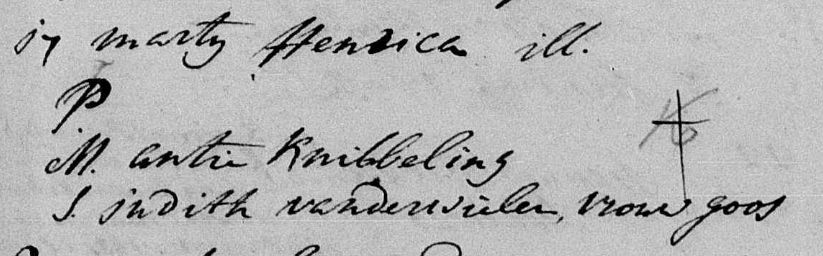 17 marty Henrica ill.
P
M. antie Knibbeling
S. judith vanderwielen, vrouw goos